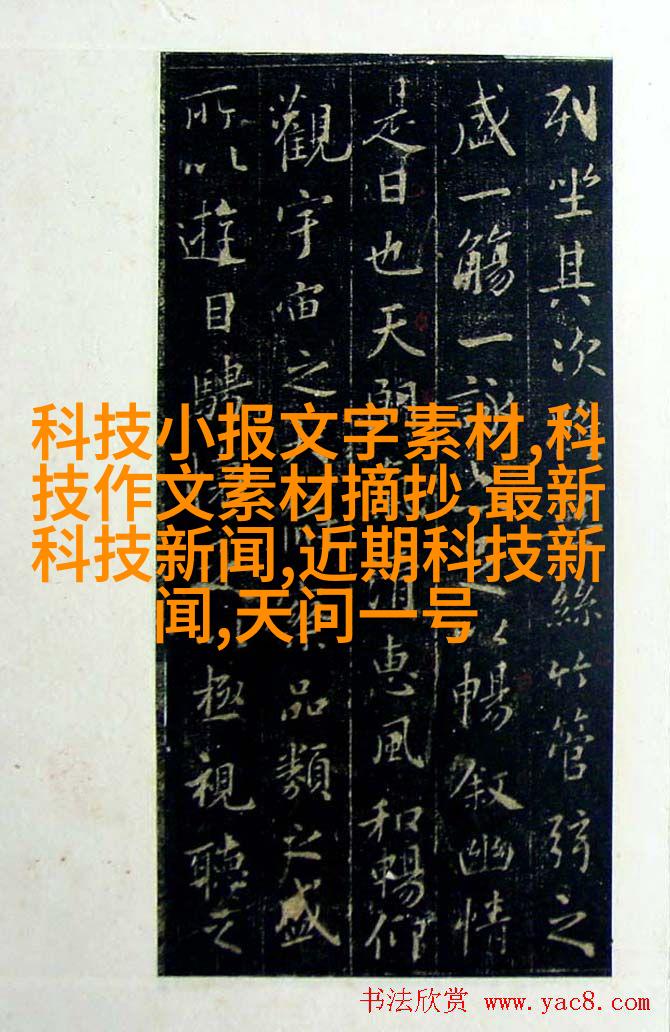 列坐其次絲竹管弦之
盛一觴一詠以暢叙幽情
是日也天朗清惠風和暢仰
觀宇宙之品類之盛
所以遊目騁極視聽之
科技小报文字素材,科
技作文素材摘抄,最新
科技新闻,近期科技新
闻,天问一号
书法欣赏 www.yac8.com